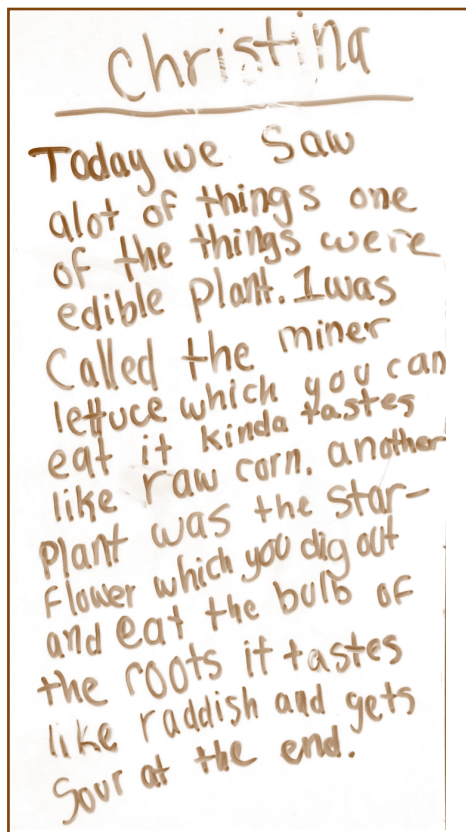 Christina
Today we Saw
alot of things one
of the things were
edible plant. 1 was
Called the miner
lettuce which you can
eat it kinda tastes
like raw corn. another
plant was the star-
flower which you dig out
and eat the bulb of
the roots it tastes
like raddish and gets
Sour at the end.